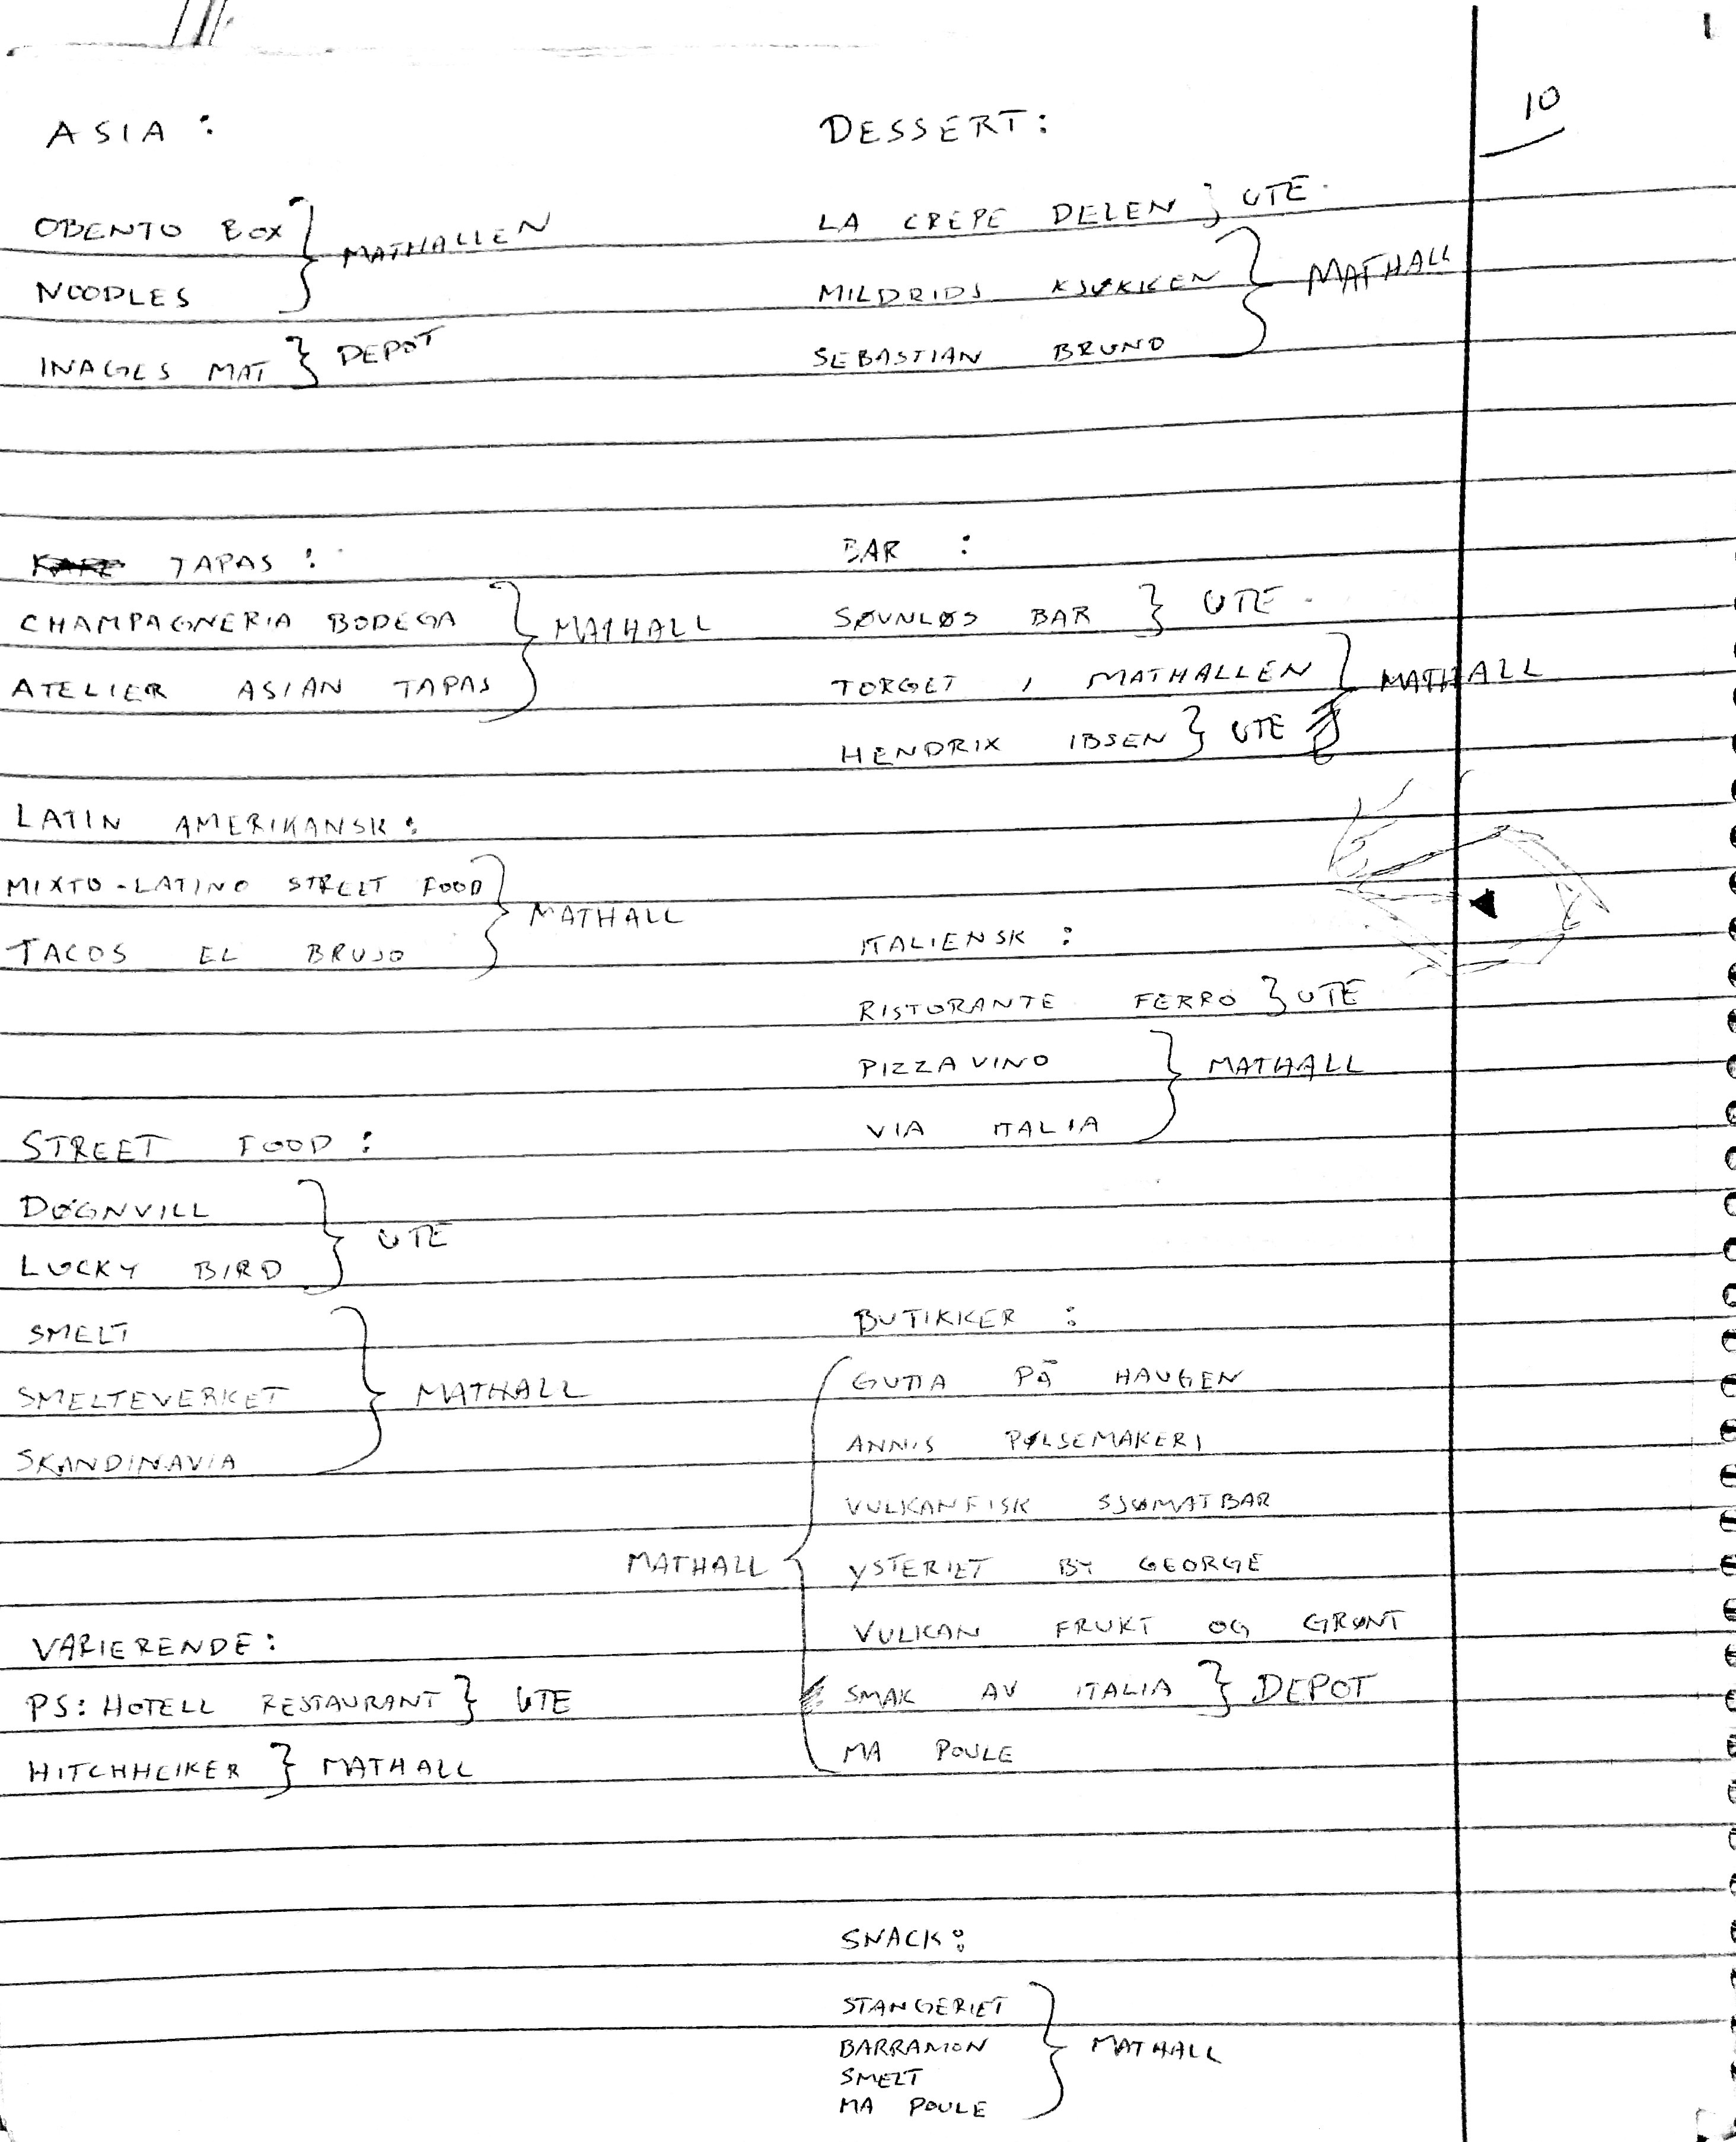 10
ASIA :
OBENTO BOX
NOODLES
MATHALLEN
INAGES MAT } DEPOT
TAPAS :
CHAMPAGNERIA BODEGA
ATELIER ASIAN TAPAS
MATHALL
LATIN AMERIKANSK :
MIXTO-LATINO STREET FOOD
TACOS EL BRUJO
MATHALL
STREET FOOD :
DØGNVILL
LUCKY BIRD
UTE
SMELT
SMELTEVERKET
SKANDINAVIA
MATHALL
VARIERENDE :
PS: HOTELL RESTAURANT } UTE
HITCHHEIKER } MATHALL
DESSERT :
LA CREPE DELEN } UTE
MILDRIDS KJØKKEN
SEBASTIAN BRUNO
MATHALL
BAR :
SØVNLØS BAR } UTE
TORGET I MATHALLEN } MATHALL
HENDRIX IBSEN } UTE
ITALIENSK :
RISTORANTE FERRO } UTE
PIZZA VINO
VIA ITALIA
MATHALL
BUTIKKER :
GUTTA PÅ HAUGEN
ANNIS PØLSEMAKERI
VULKANFISK SJØMATBAR
MATHALL
YSTERIET BY GEORGE
VULKAN FRUKT OG GRØNT
SMAK AV ITALIA } DEPOT
MA POULE
SNACK :
STANGERIET
BARRAMON
SMELT
MA POULE
MATHALL